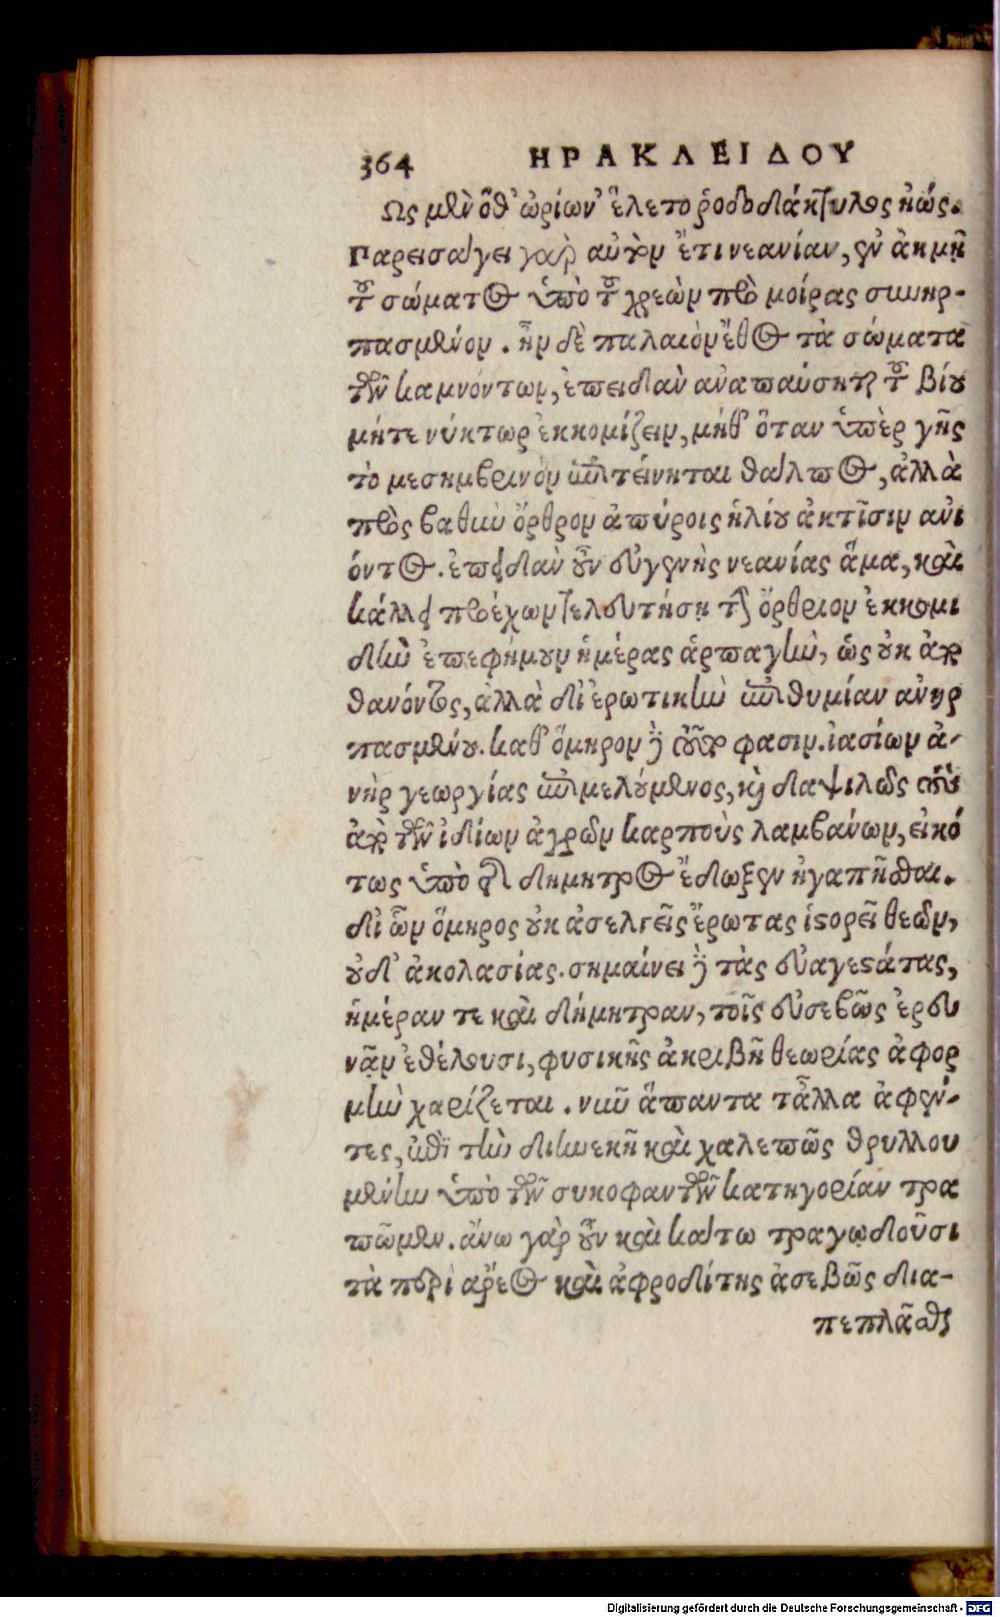 364 ΗΡΑΚΛΕΙΔΟΥ
Ως μὲν ὅθ' ὠρίων' ἕλετο ῥοδοδάκτυλος ἠώς.
Παρεισάγει γὰρ αὐτὸν ἔτι νεανίαν, ἐν ἀκμῇ
τοῦ σώματος ὑπὸ τοῦ χρεὼν πρὸ μοίρας συνηρ-
πασμένον. ἦν δὲ παλαιὸν ἔθος τὰ σώματα
τῶν καμνόντων, ἐπειδὰν ἀναπαύσηται τοῦ βίου
μήτε νύκτωρ ἐκκομίζειν, μήθ' ὅταν ὑπὲρ γῆς
τὸ μεσημβρινὸν ἐπιτείνηται θάλπος, ἀλλὰ
πρὸς βαθὺν ὄρθρον ἀπύροις ἡλίου ἀκτῖσιν ἀνι
όντος. ἐπειδὰν οὖν εὐγενὴς νεανίας ἅμα, καὶ
κάλλει προέχων τελευτήσῃ τὴν ὄρθριον ἐκκομι
δὴν ἐπεφήμουν ἡμέρας ἁρπαγὴν, ὡς οὐκ ἀπο
θανόντος, ἀλλὰ δι' ἐρωτικὴν ἐπιθυμίαν ἀνηρ
πασμένου. καθ' ὅμηρον δὲ τοῦτο φασιν. ἰασίων ἀ-
νὴρ γεωργίας ἐπιμελούμενος, καὶ δαψιλῶς τοὺς
ἀπὸ τῶν ἰδίων ἀγρῶν καρποὺς λαμβάνων, εἰκό
τως ὑπὸ τῆς δημητρος ἔδοξεν ἠγαπῆσθαι.
δι' ὧν ὅμηρος οὐκ ἀσελγεῖς ἔρωτας ἱστορεῖ θεῶν,
οὐδ' ἀκολασίας. σημαίνει δὲ τὰς εὐαγεστάτας,
ἡμέραν τε καὶ δήμητραν, τοῖς εὐσεβῶς ἐρευ
νᾷν ἐθέλουσι, φυσικῆς ἀκριβῆ θεωρίας ἀφορ
μὴν χαρίζεται. νῦν ἅπαντα τἆλλα ἀφέν-
τες, ἐπὶ τὴν διηνεκῆ καὶ χαλεπῶς θρυλλου
μένην ὑπὸ τῶν συκοφαντῶν κατηγορίαν τρα
πῶμεν. ἄνω γὰρ οὖν καὶ κάτω τραγῳδοῦσι
τὰ περὶ ἄρεος καὶ ἀφροδίτης ἀσεβῶς δια-
πεπλᾶσθαι
Digitalisierung gefördert durch die Deutsche Forschungsgemeinschaft - DFG